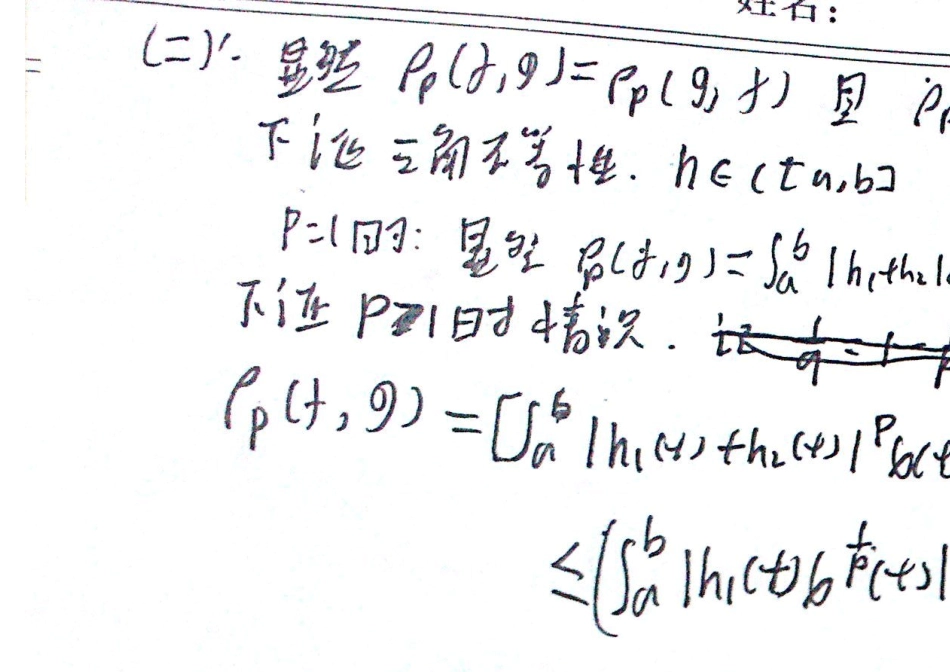 姓名:
(二)1. 显然 ρ_p(f,g)=ρ_p(g,f) 且 ρ_p
下证三角不等性. h∈C[a,b]
P=1时: 显然 ρ_p(f,g)=∫_a^b |h_1+h_2|
下证 P>1时情况.
ρ_p(f,g)=[∫_a^b |h_1(t)+h_2(t)|^p b(t
≤(∫_a^b |h_1(t)b^{1/p}(t)|